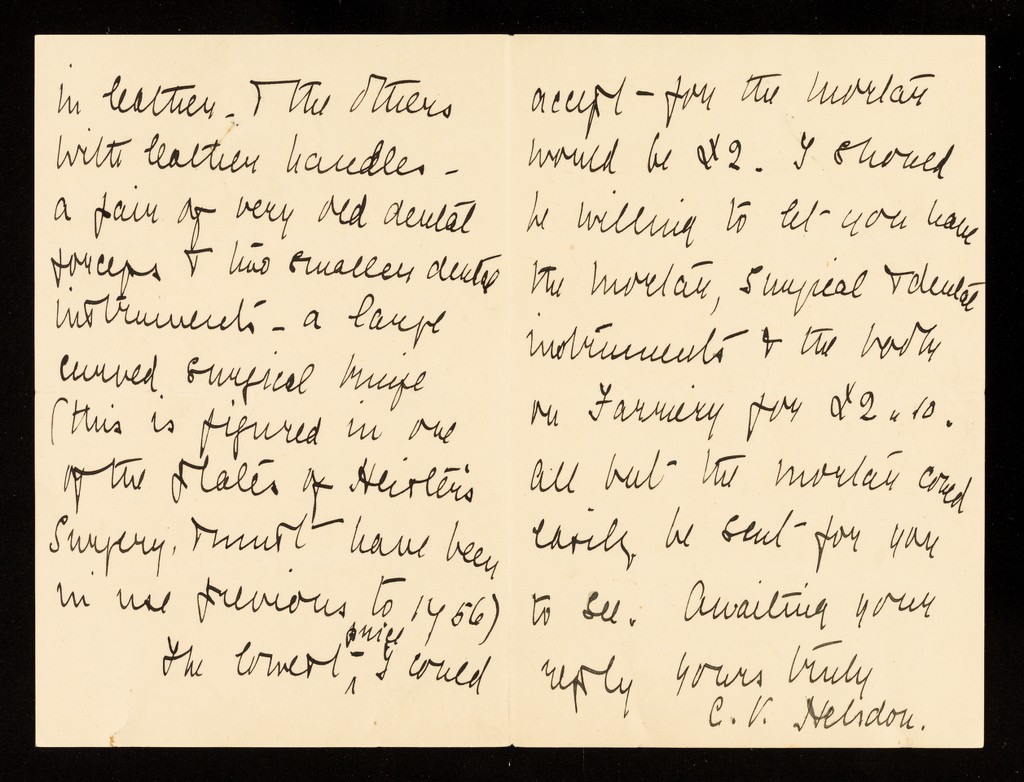 in leather - & the others
with leather handles -
a pair of very old dental
forceps & two smaller dental
instruments - a large
curved surgical knife
(this is figured in one
of the plates of Heister's
Surgery, & must have been
in use previous to 1756)
The lowest price I could
accept - for the mortar
would be £2. I should
be willing to let you have
the mortar, surgical & dental
instruments & the book
on Farriery for £2 " 10.
All but the mortar could
easily be sent for you
to see. Awaiting your
reply yours truly
C. V. Helsdon.